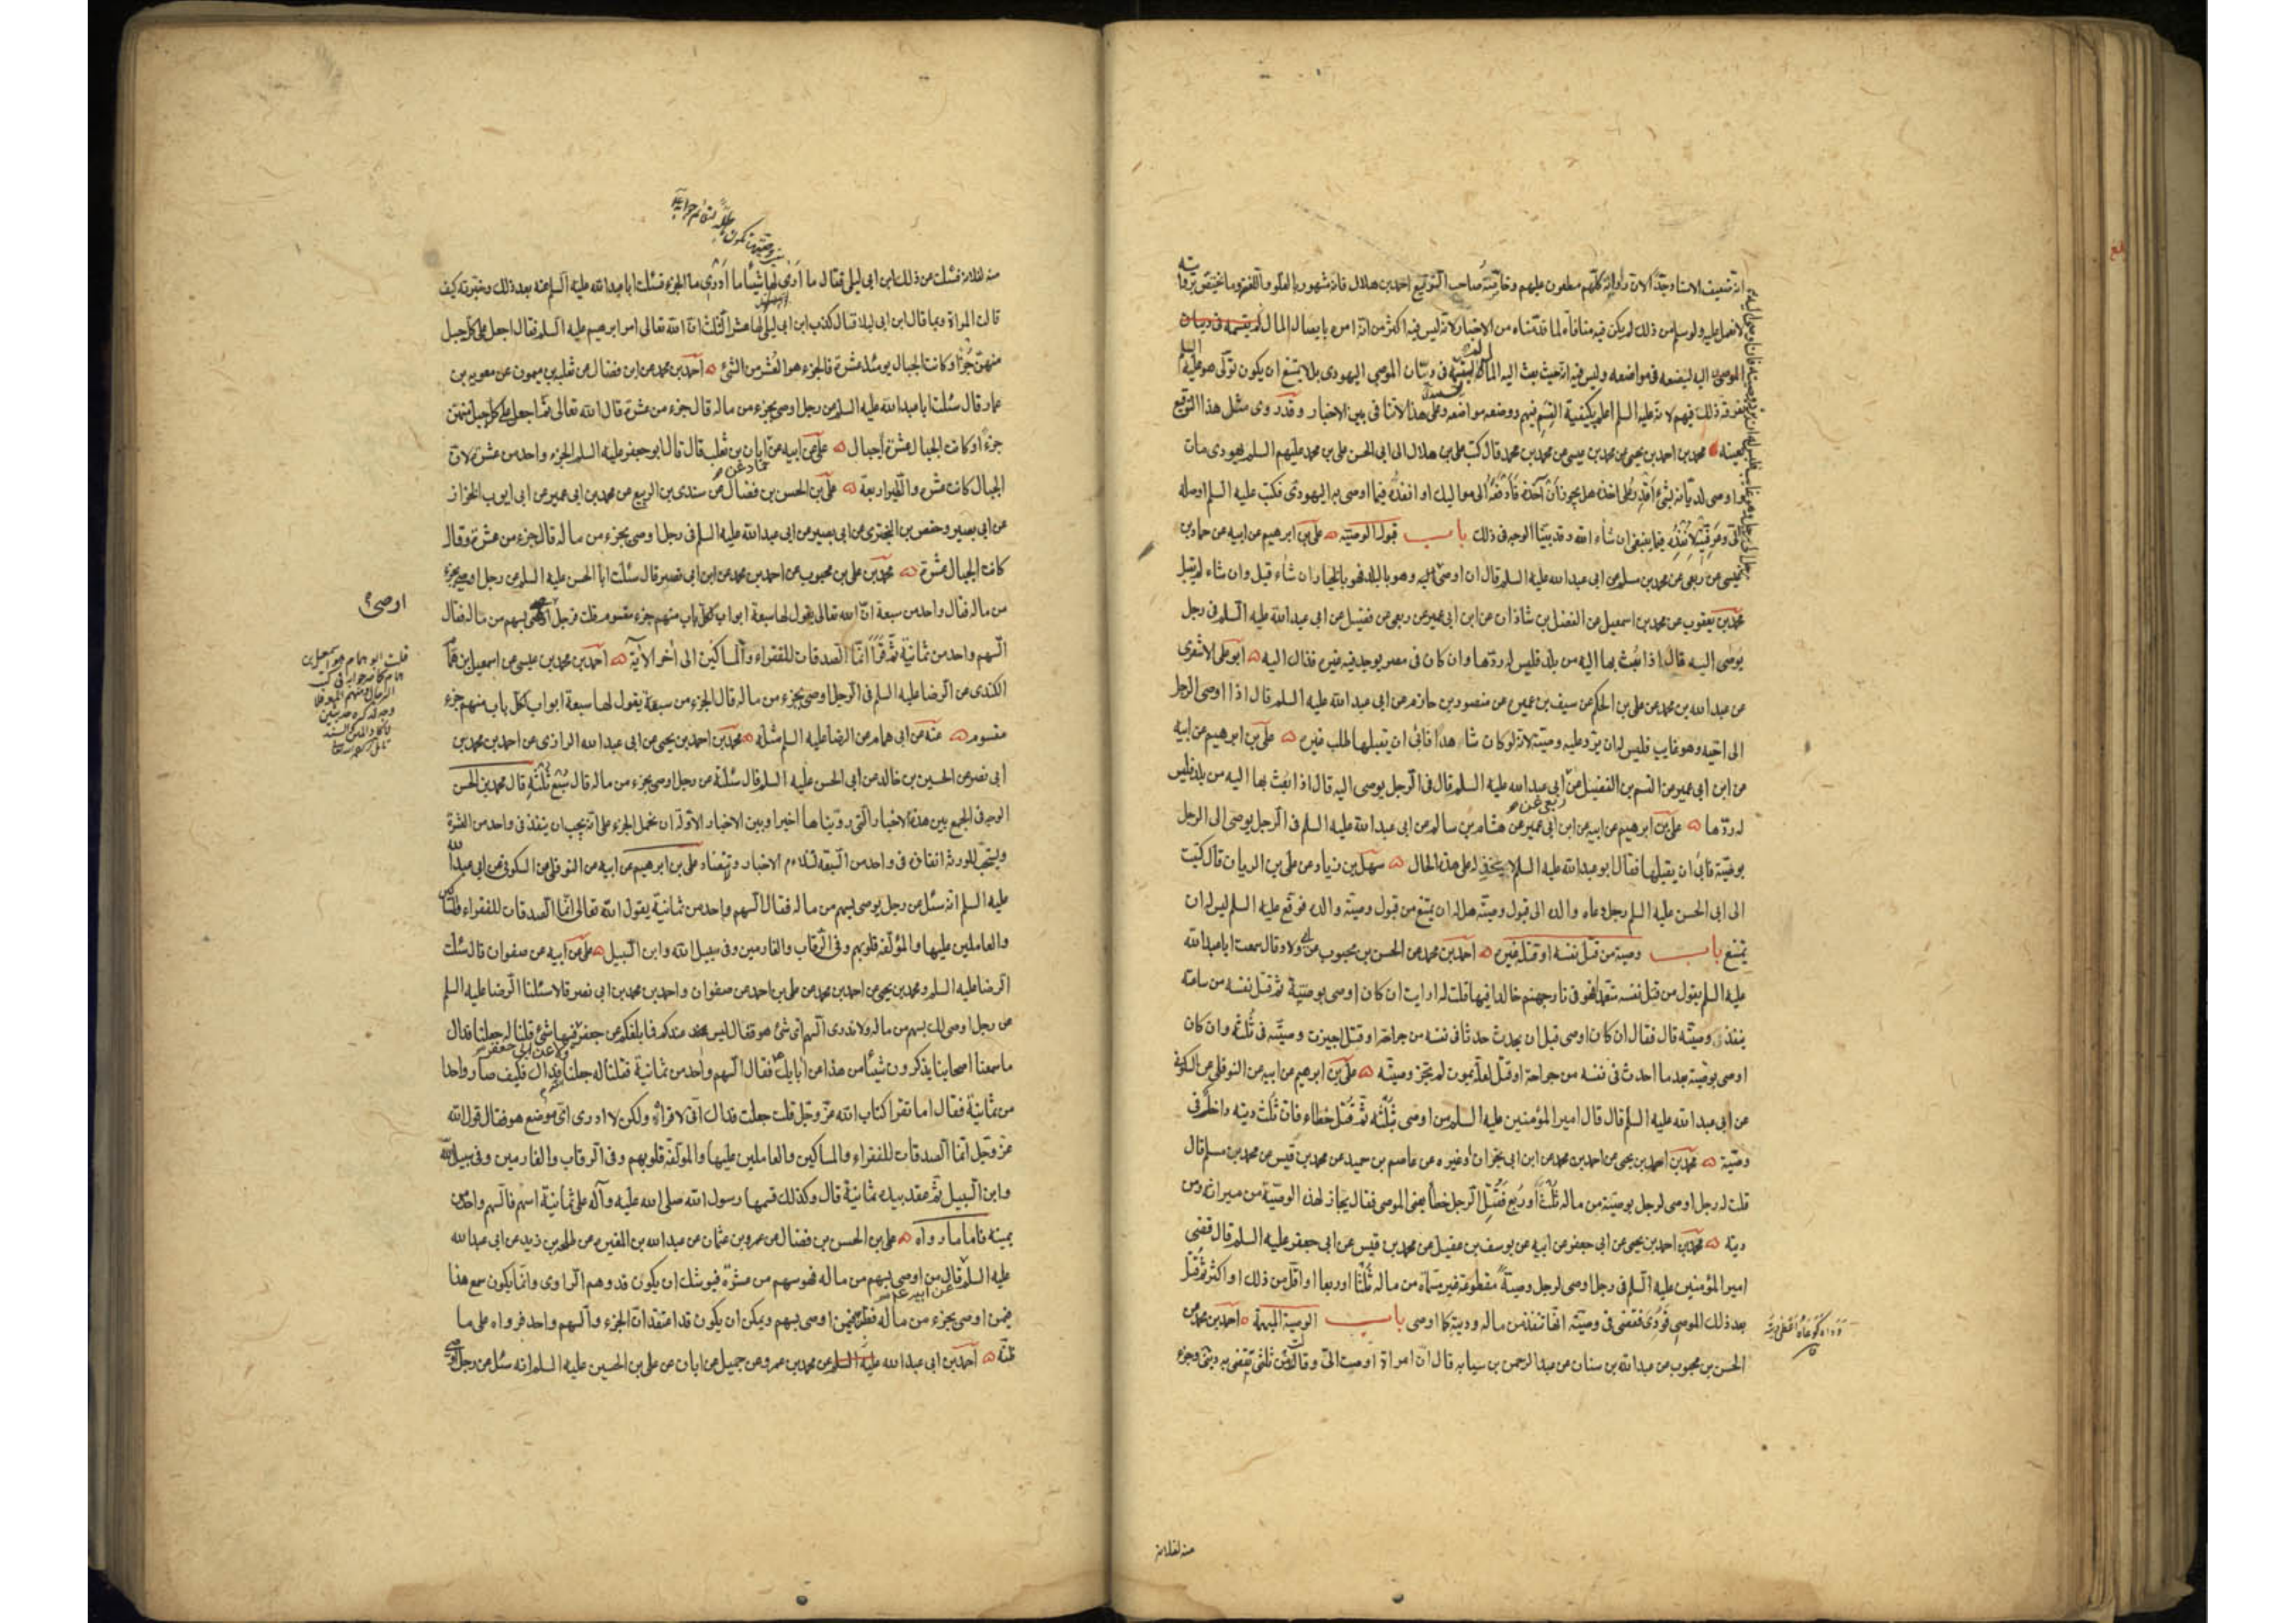 انه ضعيف الاسناد جدا لان رواته كلهم مطعون عليهم وخاصة صاحب التوقيع احمد بن هلال فانه مشهور بالغلو واللعنة وما يختص بروايته
لا نعمل عليه ولو سلم من ذلك لم يكن فيه منافاة لما قدمناه من الاخبار لانه ليس فيه اكثر من انه امره بايصال المال
الموصى اليه ليضعه في مواضعه وليس فيه انه حيث بعث اليه المال ليقسمه في ديان الموصي اليهودي بل لا يمتنع ان يكون تولى هو عليه السلم
تفرقة ذلك فيهم لانه عليه السلم اعلم بكيفية القسم فيهم ووضعه مواضعه وعلى هذا لا تنافي بين الاخبار وقد روى مثل هذا التوقيع
بعينه محمد بن احمد بن يحيى عن محمد بن عيسى عن محمد بن محمد قال كتب علي بن هلال الى ابي الحسن علي بن محمد عليهم السلم يهودي مات
واوصى لديانه بشيء اقدر على اخذه هل يجوز ان آخذه فأدفعه الى مواليك او انفذه فيما اوصى به اليهودي فكتب عليه السلم اوصله
الي وعرفنيه لانفذه فيما ينبغي ان شاء الله وقد بينا الوجه في ذلك باب قبول الوصية علي بن ابرهيم عن ابيه عن حماد بن
عيسى عن ربعي عن محمد بن مسلم عن ابي عبد الله عليه السلم قال ان اوصى اليه وهو بالبلد فهو بالخيار ان شاء قبل وان شاء لم يقبل
محمد بن يعقوب عن محمد بن اسمعيل عن الفضل بن شاذان عن ابن ابي عمير عن ربعي عن فضيل عن ابي عبد الله عليه السلم في رجل
يوصى اليه قال اذا بعث بها اليه من بلد فليس له ردها وان كان في مصر يوجد فيه غيره فذاك اليه ابو علي الاشعري
عن عبد الله بن محمد عن علي بن الحكم عن سيف بن عميره عن منصور بن حازم عن ابي عبد الله عليه السلم قال اذا اوصى الرجل
الى اخيه وهو غايب فليس له ان يرد عليه وصيته لانه لو كان شاهدا فابى ان يقبلها طلب غيره علي بن ابرهيم عن ابيه
عن ابن ابي عمير عن القسم بن الفضيل عن ابي عبد الله عليه السلم قال في الرجل يوصى اليه قال اذا بعث بها اليه من بلد فليس
له ردها علي بن ابرهيم عن ابيه عن ابن ابي عمير عن هشام بن سالم عن ابي عبد الله عليه السلم في الرجل يوصى الى الرجل
بوصية فابى ان يقبلها فقال ابو عبد الله عليه السلم لا يخذله على هذه الحال سهل بن زياد عن علي بن الريان قال كتبت
الى ابي الحسن عليه السلم رجل دعاه والده الى قبول وصيته هل له ان يمتنع من قبول وصيته والده فوقع عليه السلم ليس له ان
يمتنع باب وصية من قتل نفسه او قتله غيره احمد بن محمد عن الحسن بن محبوب عن ابي ولاد قال سمعت ابا عبد الله
عليه السلم يقول من قتل نفسه متعمدا فهو في نار جهنم خالدا فيها قلت له ارايت ان كان اوصى بوصية ثم قتل نفسه من ساعته
ينفذ وصيته قال فقال ان كان اوصى قبل ان يحدث حدثا في نفسه من جراحة او قتل اجيزت وصيته في ثلثه وان كان
اوصى بوصية بعد ما احدث في نفسه من جراحة او قتل لعله يموت لم يجز وصيته علي بن ابرهيم عن ابيه عن النوفلي عن السكوني
عن ابي عبد الله عليه السلم قال قال امير المؤمنين عليه السلم من اوصى بثلثه ثم قتل خطاء فان ثلث ديته داخل في
وصيته محمد بن احمد بن يحيى عن احمد بن محمد عن ابن ابي نجران او غيره عن عاصم بن حميد عن محمد بن قيس عن محمد بن مسلم قال
قلت له رجل اوصى لرجل بوصية من ماله ثلث او ربع فقتل الرجل خطأ يعني الموصي فقال يجاز لهذه الوصية من ميراثه ومن
ديته محمد بن احمد بن يحيى عن ابي جعفر عن ابيه عن يوسف بن عقيل عن محمد بن قيس عن ابي جعفر عليه السلم قال قضى
امير المؤمنين عليه السلم في رجل اوصى لرجل وصية مقطوعة غير مسماة من ماله ثلثا او ربعا او اقل من ذلك او اكثر ثم قتل
بعد ذلك الموصي فودي فقضى في وصيته انها تنفذ من ماله وديته كما اوصى باب الوصية المبهمة احمد بن محمد عن
الحسن بن محبوب عن عبد الله بن سنان عن عبد الرحمن بن سيابه قال ان امراة اوصت الي وقالت ثلثي تقضي به ديني وجزء
منه لفلانة
منه لفلانة فسئلت عن ذلك ابن ابي ليلى فقال ما ارى لها شيئا ما ادري ما الجزء فسئلت ابا عبد الله عليه السلم عنه بعد ذلك وخبرته كيف
قالت المراة وبما قال ابن ابي ليلا فقال كذب ابن ابي ليلى لها عشر الثلث ان الله تعالى امر ابرهيم عليه السلم فقال اجعل على كل جبل
منهن جزءا وكانت الجبال يومئذ عشرة فالجزء هو العشر من الشئ احمد بن محمد عن ابن فضال عن ثعلبه بن ميمون عن معويه بن
عمار قال سئلت ابا عبد الله عليه السلم عن رجل اوصى بجزء من ماله قال جزء من عشرة قال الله تعالى ثم اجعل على كل جبل منهن
جزءا وكانت الجبال عشرة اجبال علي عن ابيه عن ابان بن تغلب قال قال ابو جعفر عليه السلم الجزء واحد من عشرة لان
الجبال كانت عشره والطير اربعة علي بن الحسن بن فضال عن سندي بن الربيع عن محمد بن ابي عمير عن ابي ايوب الخزاز
عن ابي بصير وحفص بن البختري عن ابي بصير عن ابي عبد الله عليه السلم في رجل اوصى بجزء من ماله قال جزء من عشرة وقال
كانت الجبال عشرة محمد بن علي بن محبوب عن احمد بن محمد عن ابن ابي نصر قال سئلت ابا الحسن عليه السلم عن رجل اوصى بجزء
من ماله فقال واحد من سبعة ان الله تعالى يقول لها سبعة ابواب لكل باب منهم جزء مقسوم قلت فرجل اوصى بسهم من ماله فقال
السهم واحد من ثمانية ثم قرأ انما الصدقات للفقراء والمساكين الى اخر الآية احمد بن محمد بن عيسى عن اسمعيل بن همام
الكندي عن الرضا عليه السلم في الرجل اوصى بجزء من ماله قال الجزء من سبعة يقول لها سبعة ابواب لكل باب منهم جزء
مقسوم عنه عن ابي همام عن الرضا عليه السلم مثله محمد بن احمد بن يحيى عن ابي عبد الله الرازي عن احمد بن محمد بن
ابي نصر عن الحسين بن خالد عن ابي الحسن عليه السلم قال سئلته عن رجل اوصى بجزء من ماله قال سبع ثلثه قال محمد بن الحسن
الوجه في الجمع بين هذه الاخبار التي رويناها اخيرا وبين الاخبار الاوله ان نحمل الجزء على انه يجب ان ينفذ في واحد من العشرة
ويستحب للورثه انفاذه في واحد من السبعه لتتلاءم الاخبار علي بن ابرهيم عن ابيه عن النوفلي عن السكوني عن ابي عبد الله
عليه السلم انه سئل عن رجل يوصي بسهم من ماله فقال السهم واحد من ثمانية يقول الله تعالى انما الصدقات للفقراء والمساكين
والعاملين عليها والمؤلفة قلوبهم وفي الرقاب والغارمين وفي سبيل الله وابن السبيل علي عن ابيه عن صفوان قال سئلت
الرضا عليه السلم ومحمد بن يحيى عن احمد بن محمد عن علي بن احمد عن صفوان واحمد بن محمد بن ابي نصر قالا سئلنا الرضا عليه السلم
عن رجل اوصى لك بسهم من ماله ولا ندري السهم اي شئ هو فقال ليس عندكم فيما بلغكم عن جعفر ولا عن ابي جعفر فيها شئ قلنا له جعلنا فداك
ما سمعنا اصحابنا يذكرون شيئا من هذا عن آبايك فقال السهم واحد من ثمانية فقلنا له جعلنا فداك فكيف صار واحدا
من ثمانية فقال اما تقرا كتاب الله عز وجل قلت جعلت فداك اني لاقرأه ولكن لا ادري اي موضع هو فقال قول الله
عز وجل انما الصدقات للفقراء والمساكين والعاملين عليها والمؤلفة قلوبهم وفي الرقاب والغارمين وفي سبيل الله
وابن السبيل ثم عقد بيده ثمانية قال وكذلك قسمها رسول الله صلى الله عليه وآله على ثمانية اسهم فالسهم واحد من
ثمانية فاما ما رواه علي بن الحسن بن فضال عن عمرو بن عثمان عن عبد الله بن المغيره عن طلحه بن زيد عن ابي عبد الله
عليه السلم قال من اوصى بسهم من ماله فهو سهم من عشرة فيوشك ان يكون قد وهم الراوي وانما يكون سمع هذا
فيمن اوصى بجزء من ماله فظن فيمن اوصى بسهم ويمكن ان يكون قد اعتقد ان الجزء والسهم واحد فرواه على ما
ظنه احمد بن ابي عبد الله عن محمد بن عمرو عن جميل عن ابان عن علي بن الحسين عليه السلم انه سئل عن رجل اوصى
اوصى